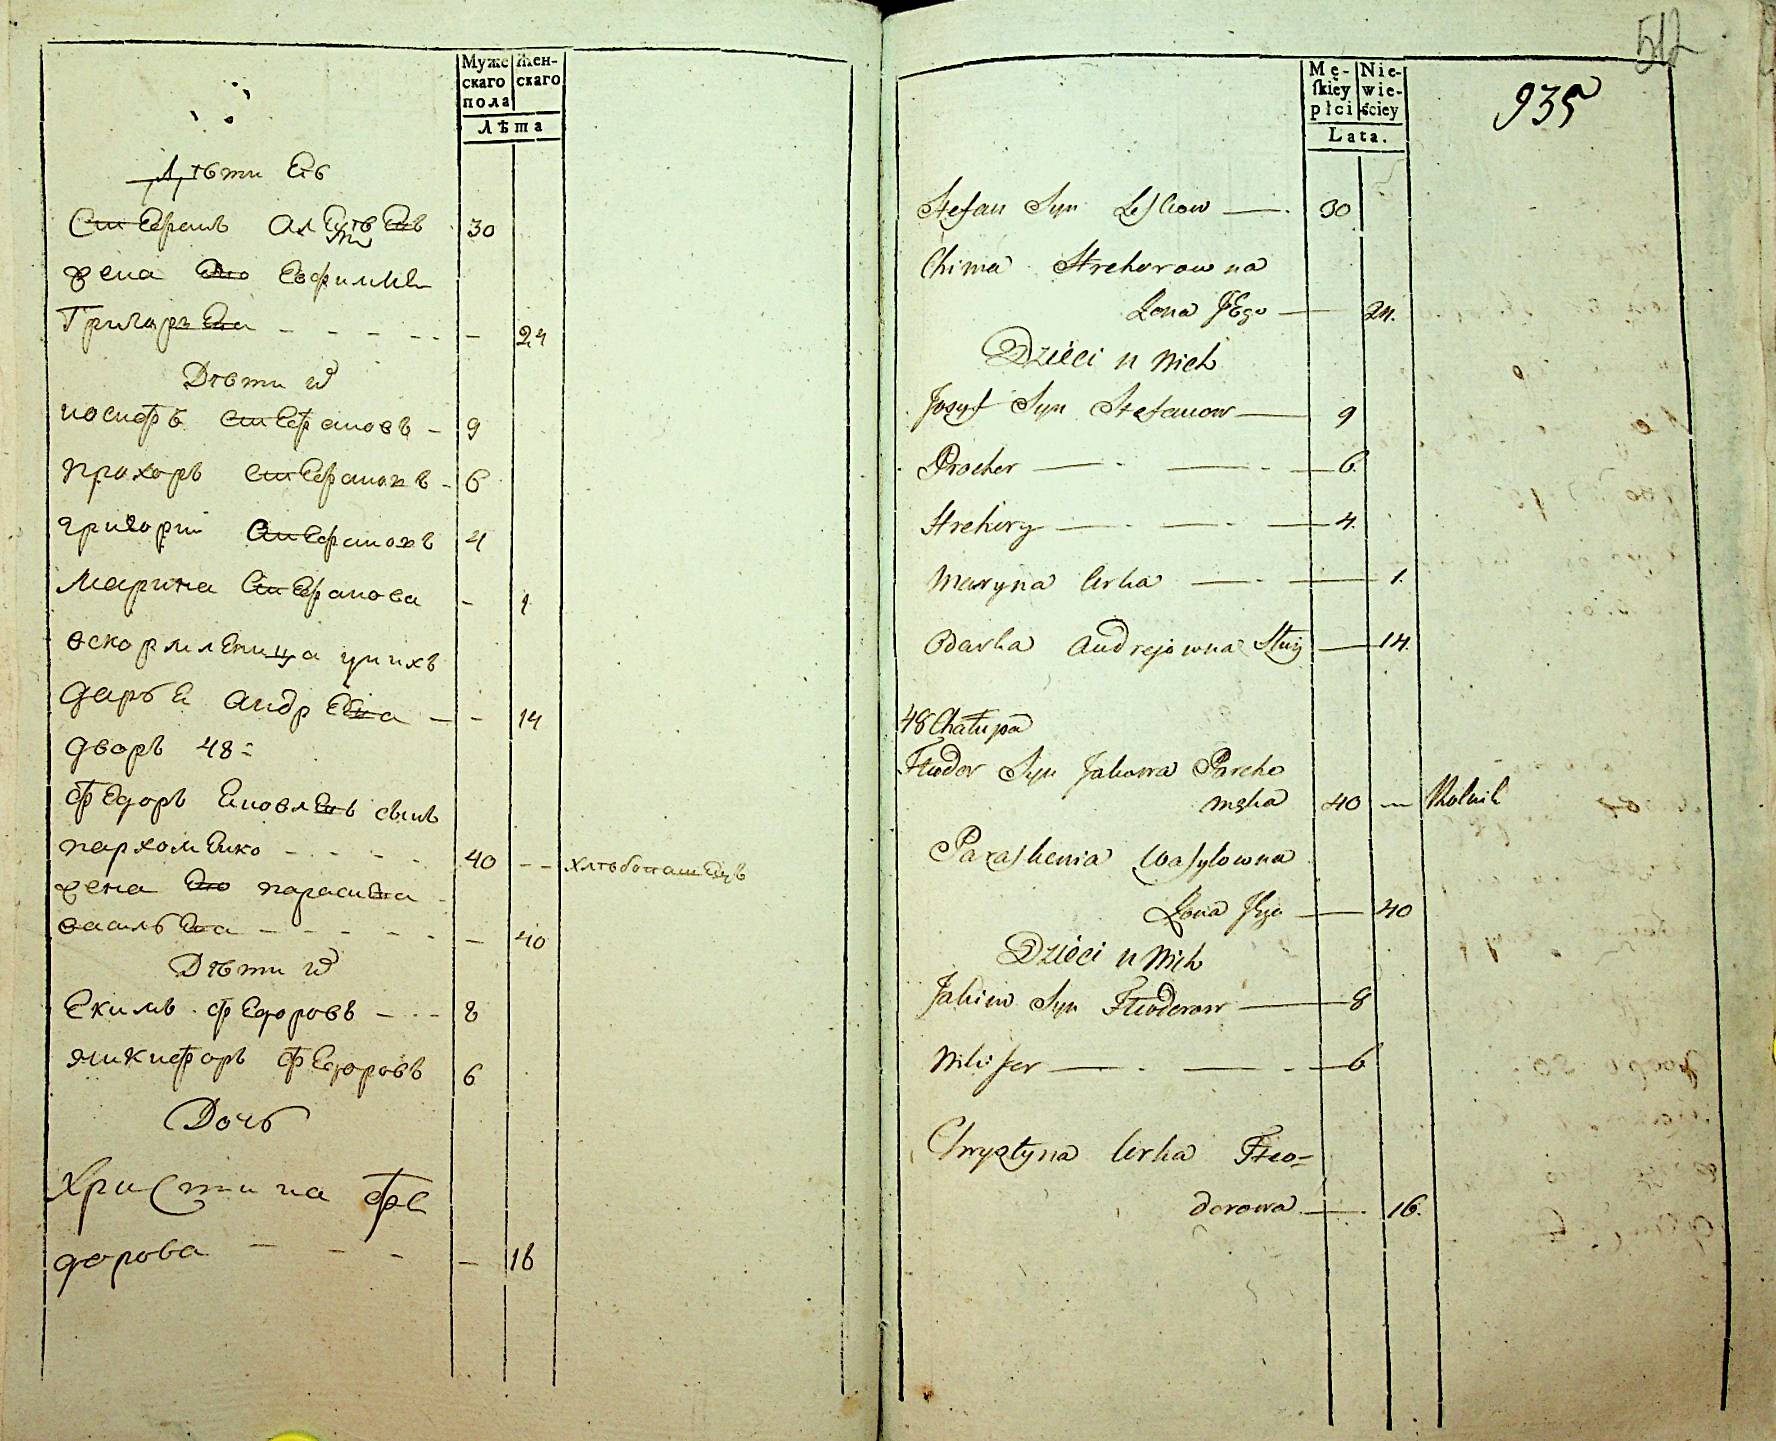 Муже
скаго
пола
Жен-
скаго
Лѣта
Дѣти Ев
Стефанъ Алеѯѣевъ 30
жена Его Евфимия
Григорьева - - - - - - 24
Дѣти их
иосифъ стефановъ - 9
прохоръ стефановъ - 6
григории Стефановъ 4
Марина Стефанова - 1
вскормленица у них
дарья андреева - - 14
дворъ 48:
федоръ яковлевъ сынъ
пархоменко - - - - 40 - - хлѣбопашецъ
жена Его параскева
васильева - - - - - - 40
Дѣти их
Екимъ федоровъ - - - 8
никифоръ федоровъ 6
Дочь
Христина фе
дорова - - - - 16
512
Mę-
skiey
płci
Nie-
wie-
ściey
Lata.
935
Stefan Syn Leskow 30
Chima Hrehorowna
Żona Jego 24.
Dzieci u Nich
Jozyf Syn Stefanow 9
Procher 6.
Hrehory 4.
Maryna Curka 1.
Odarka Andrejowna Służ 14.
48 Chałupa
Fteodor Syn Jakowa Parcho
męka 40 - Rolnik
Paraskenia Wasylowna
Żona Jego 40
Dzieci u Nich
Jakim Syn Fteoderow 8
Nikifer 6
Chrystyna Curka Fteo=
dorowa 16.